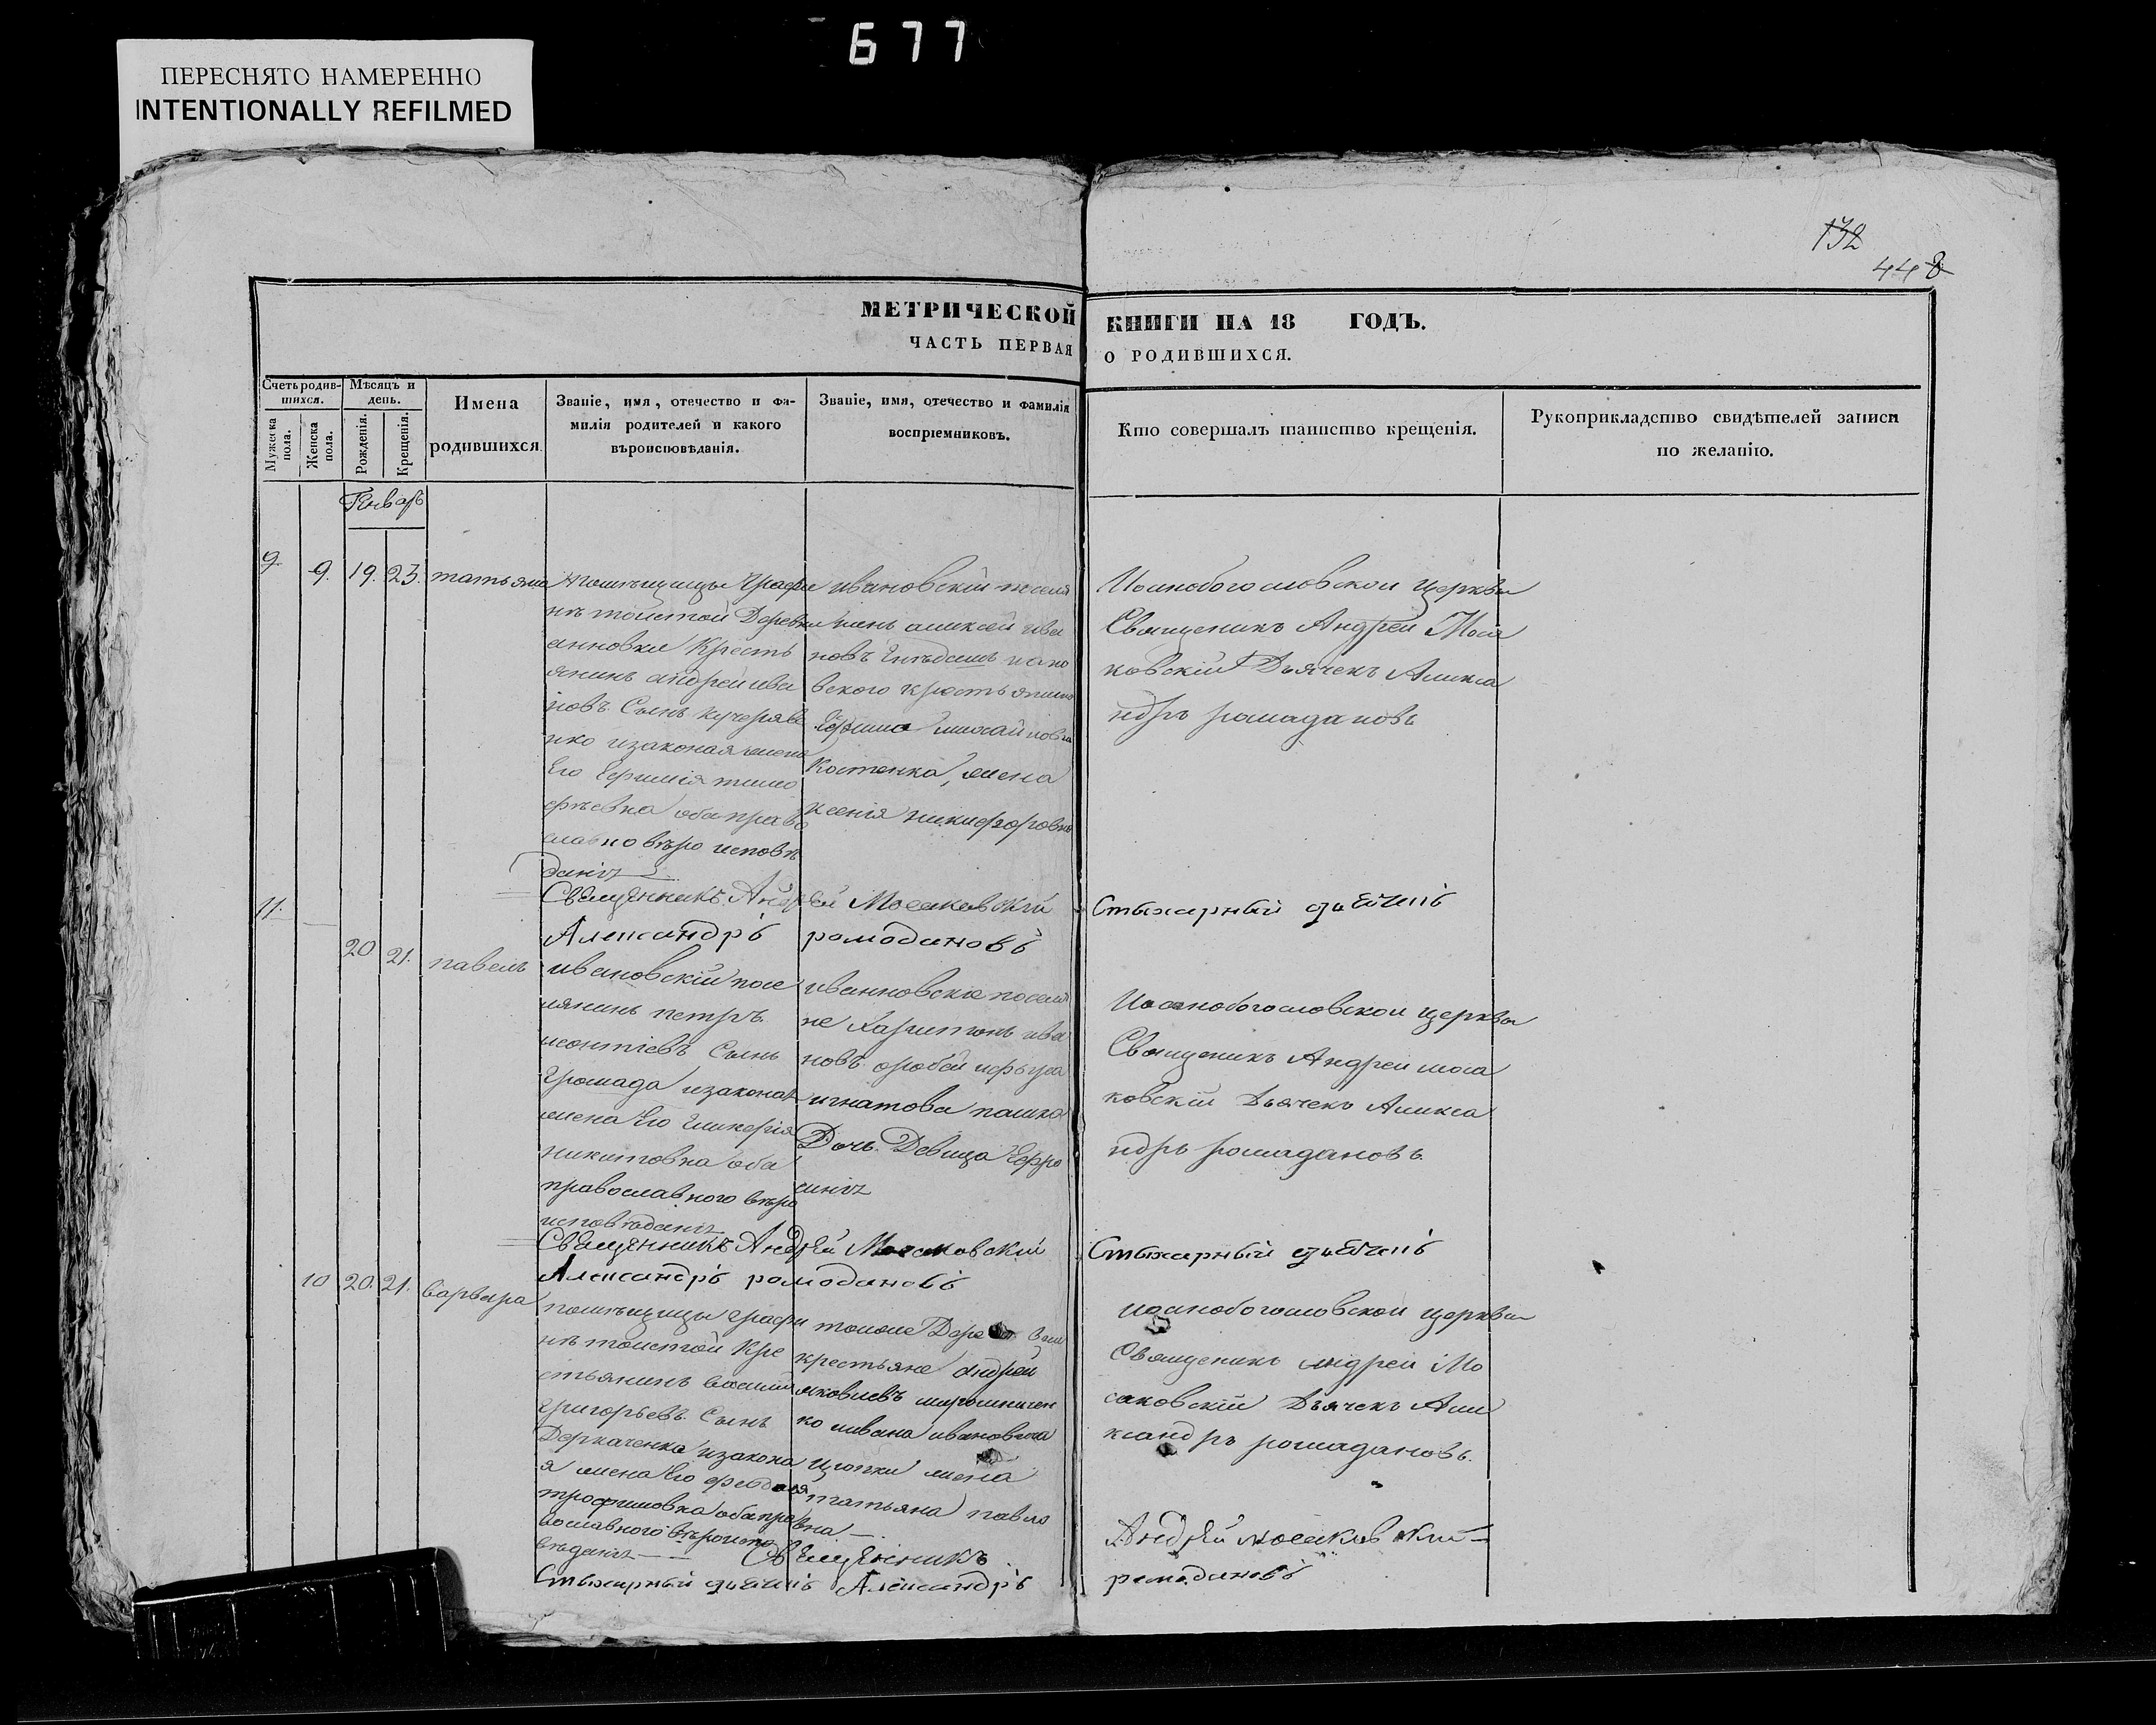 677
ПЕРЕСНЯТО НАМЕРЕННО
INTENTIONALLY REFILMED
132
448
МЕТРИЧЕСКОЙ КНИГИ НА 18 ГОДЪ.
ЧАСТЬ ПЕРВАЯ О РОДИВШИХСЯ.
Счетъ родив-
шихся.
Мужеска
пола.
Женска
пола.
Мѣсяцъ и
день.
Рожденія.
Крещенія.
Имена
родившихся
Званіе, имя, отечество и фа-
милія родителей и какого
вѣроисповѣданія.
Званіе, имя, отечество и фамилія
воспріемниковъ.
Кто совершалъ таинство крещенія.
Рукоприкладство свидѣтелей записи
по желанію.
Генваръ
9 9. 19. 23. татьяна
помѣщицы графи
нѣ толстой Деревни
анновки Кресть
янинъ андрей ива
новъ Сынъ кучеряве
нко изаконая жена
Его Ефимія тимо
фѣевна оба право
славно вѣро исповѣ
данія
ивановскій поселя
нинъ алексей ива
новъ
вского крестьянина
михайлова
Костенка, жена
ксенія никифоровна
Иоанобогословской церквы
Священикъ Андрей Моса
ковскій Дьячекъ Алекса
ндръ ромадановъ
Священникъ Андрей Мосаковскій Стыхарный
Александръ ромодановъ
11. 20 21. павелъ
ивановскій посе
лянинъ петръ
леонтіевъ Сынъ
Громада изаконая
жена Его Гликерія
никитовна оба
православного вѣро
исповѣданія
ивановскіе поселя
не Харитонъ ива
новъ
игнатова
Дочь Девица Ефро
синія
Иоанобогословской церквы
Священикъ Андрей моса
ковскій Дьячекъ Алекса
ндръ ромадановъ.
Священникъ Андрей Мосаковскій Стыхарный
Александръ ромодановъ
10 20. 21. варвара
помѣщицы графи
нѣ толстой Кре
стьянинъ василій
григорьевъ Сынъ
Деркаченко изакона
я жена Его феодосія
трофимовна оба пра
вославного вѣроиспо
вѣданія
крестьяне андрей
яковлевъ мирошничен
ко ивана ивановича
жена
татьяна павло
вна
иоанобогословской церквы
Священикъ андрей Мо
саковскій Дьячекъ Але
ксандръ ромадановъ.
Священникъ Андрей мосаковскій
Стыхарный Александръ ромодановъ